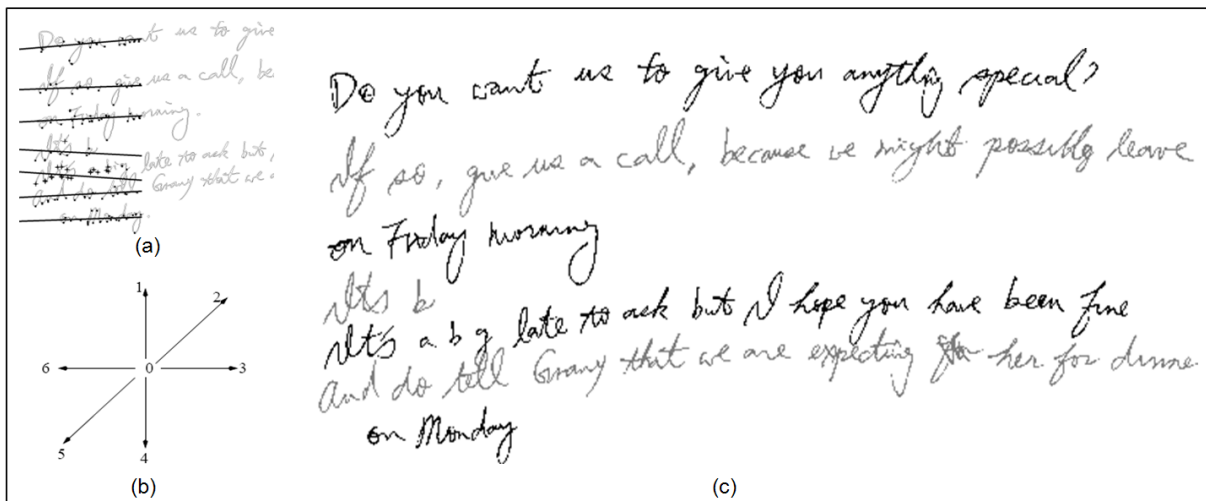 Do you want us to give
If so, give us a call, be
on Friday morning.
It's b
It's a big late to ask but,
and do tell Grany that we
on Monday.
(a)
1
2
6 0 3
5
4
(b)
Do you want us to give you anything special?
If so, give us a call, because we might possibly leave
on Friday morning
It's b
It's a b g late to ask but I hope you have been fine
And do tell Grany that we are expecting her for dinne.
on Monday
(c)